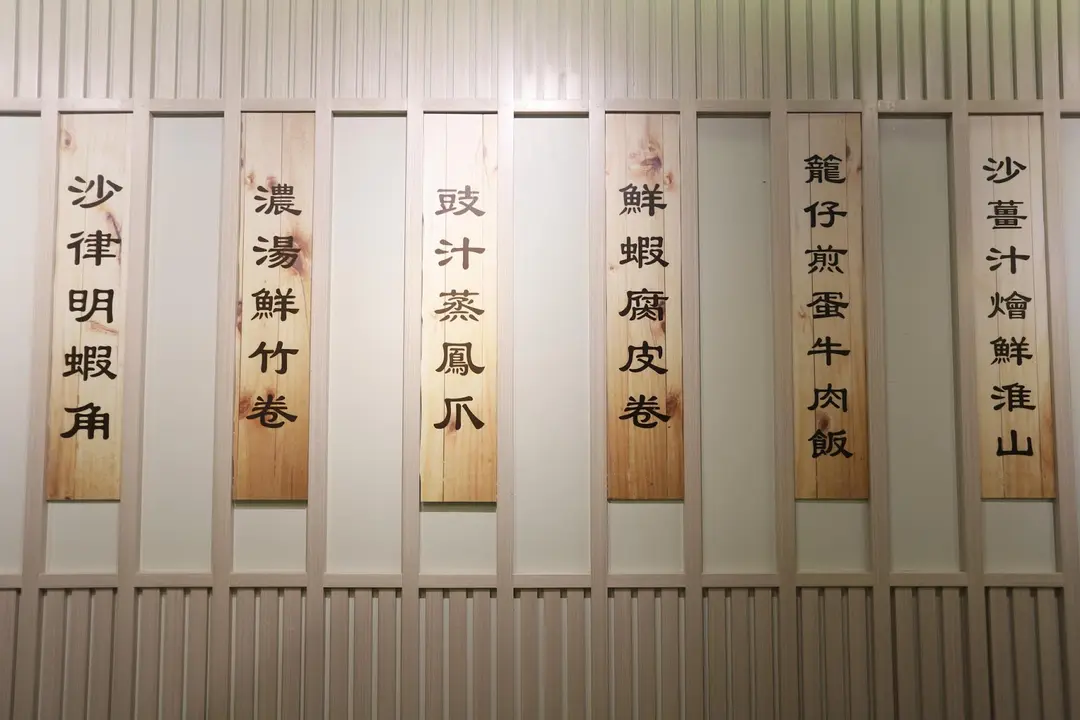 沙律明蝦角
濃湯鮮竹卷
豉汁蒸鳳爪
鮮蝦腐皮卷
籠仔煎蛋牛肉飯
沙薑汁燴鮮淮山